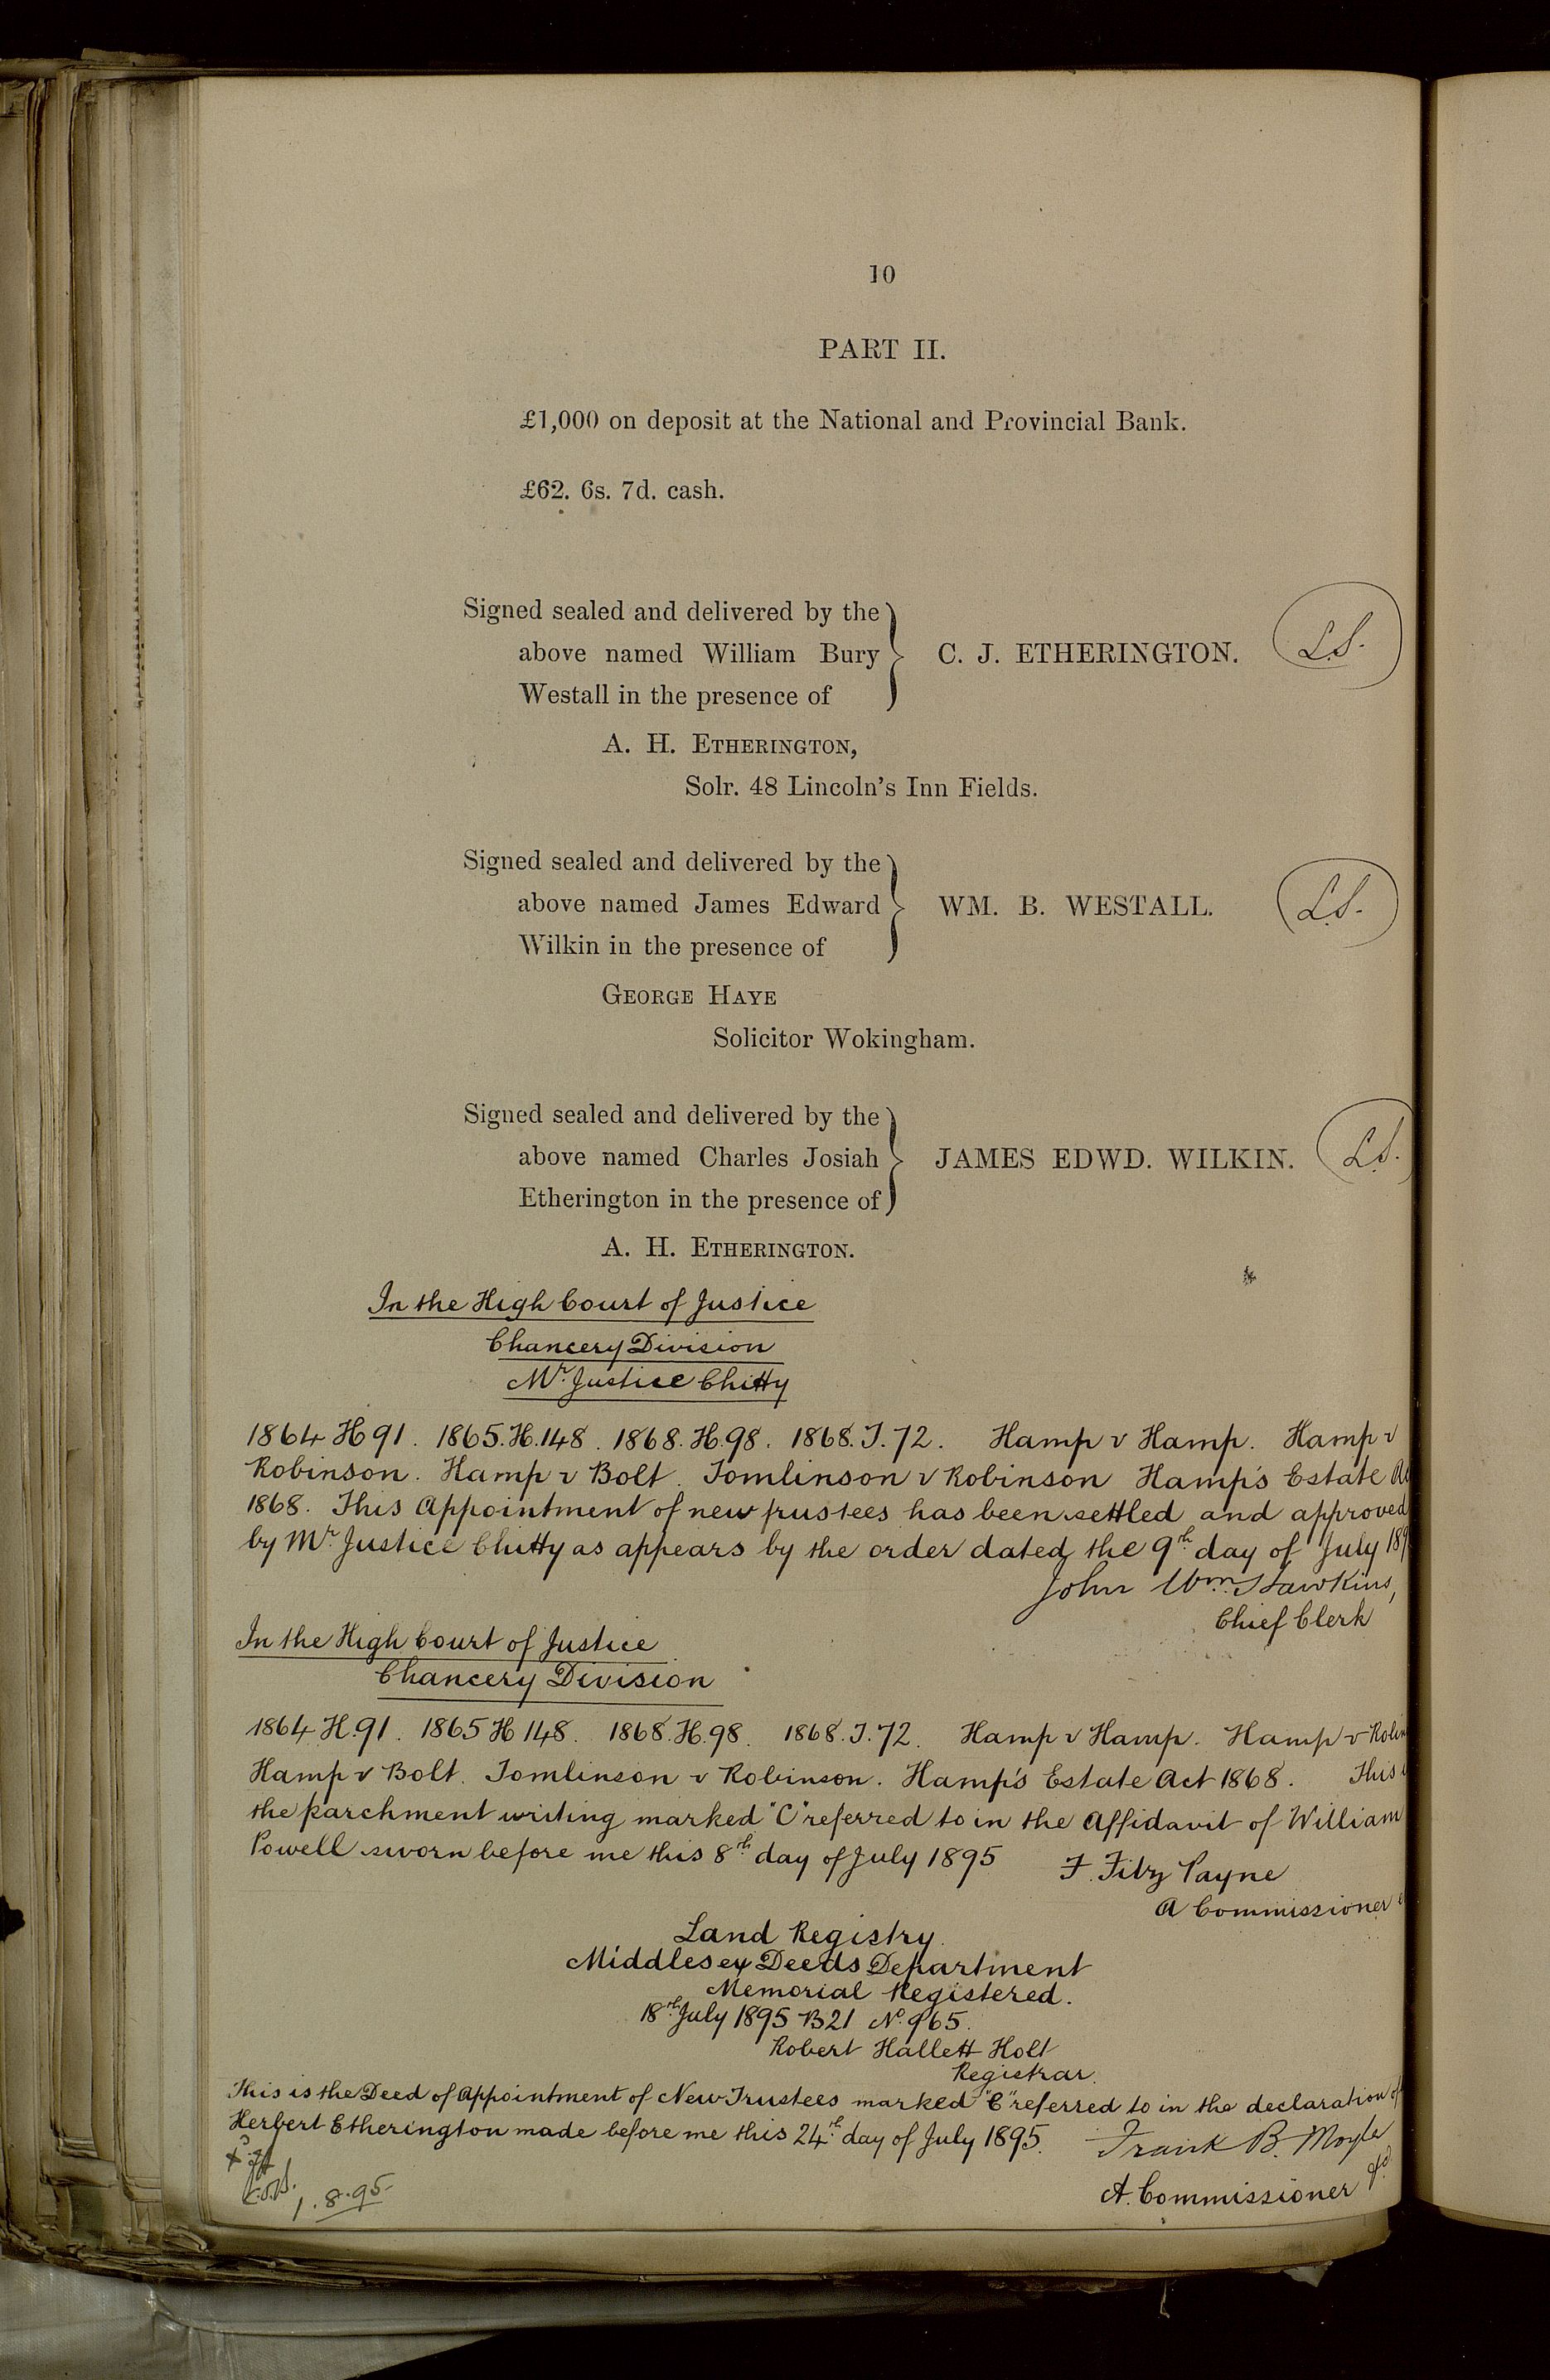 10
PART II.
£1,000 on deposit at the National and Provincial Bank.
£62. 6s. 7d. cash.
Signed sealed and delivered by the
above named William Bury
Westall in the presence of
C. J. ETHERINGTON.
L.S.
A. H. ETHERINGTON,
Solr. 48 Lincoln's Inn Fields.
Signed sealed and delivered by the
above named James Edward
Wilkin in the presence of
WM. B. WESTALL.
L.S.
GEORGE HAYE
Solicitor Wokingham.
Signed sealed and delivered by the
above named Charles Josiah
Etherington in the presence of
JAMES EDWD. WILKIN.
L.S.
A. H. ETHERINGTON.
In the High Court of Justice
Chancery Division
Mr. Justice Chitty
1864 H 91. 1865. H. 148. 1868. H. 98. 1868. T. 72. Hamp v Hamp. Hamp v
Robinson. Hamp v Bolt. Tomlinson v Robinson Hamp's Estate
1868. This Appointment of new trustees has been settled and approved
by Mr. Justice Chitty as appears by the order dated the 9th day of July
John Wm. Hawkins,
Chief Clerk
In the High Court of Justice
Chancery Division
1864 H. 91. 1865 H 148. 1868. H. 98. 1868. T. 72. Hamp v Hamp. Hamp v
Hamp v Bolt. Tomlinson v Robinson. Hamp's Estate Act 1868. This
the parchment writing marked "C" referred to in the Affidavit of William
Powell sworn before me this 8th day of July 1895
F. Fitz Payne
A Commissioner
Land Registry.
Middlesex Deeds Department
Memorial Registered.
18th July 1895 B21 No. 965.
Robert Hallett Holt
Registrar.
This is the Deed of Appointment of New Trustees marked "C" referred to in the declaration of
Herbert Etherington made before me this 24th day of July 1895.
Frank B. Moyle
A. Commissioner &c.
1.8.95